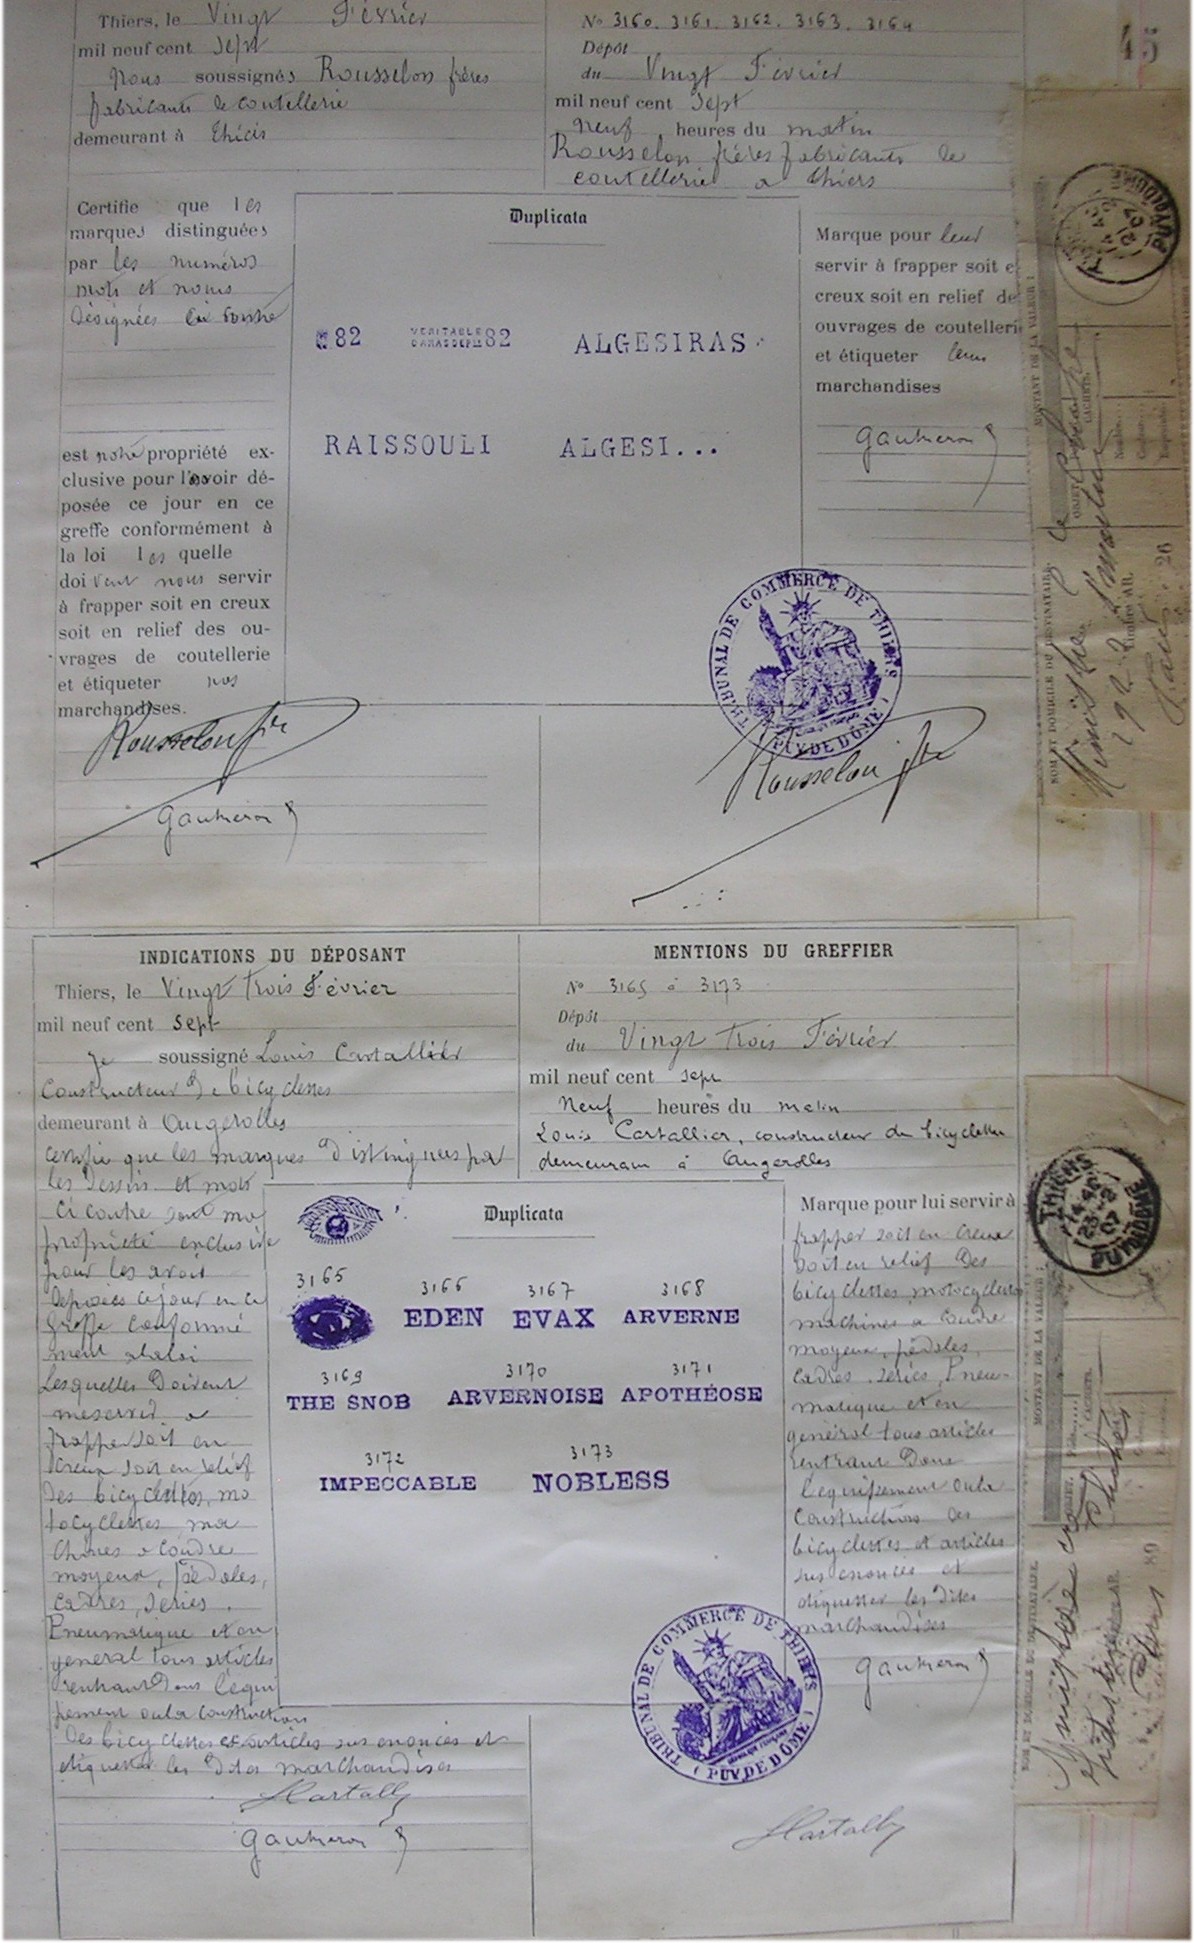 Thiers, le Vingt Février
mil neuf cent sept
Nous soussignés Rousselon frères
fabricants de coutellerie
demeurant à Thiers
No 3160. 3161. 3162. 3163. 3164
Dépôt
du Vingt Février
mil neuf cent sept
neuf heures du matin
Rousselon frères fabricants de
coutellerie a Thiers
45
Certifie que les
marques distinguées
par les numéros
mots et noms
désignées ci contre
est notre propriété ex-
clusive pour l'avoir dé-
posée ce jour en ce
greffe conformément à
la loi les quelle
doivent nous servir
à frapper soit en creux
soit en relief des ou-
vrages de coutellerie
et étiqueter nos
marchandises.
Rousselon fres
Gautheron
Duplicata
82 VERITABLE 82 ALGESIRAS
RAISSOULI ALGESI...
Marque pour leur
servir à frapper soit e
creux soit en relief de
ouvrages de coutelleri
et étiqueter leurs
marchandises
Gautheron
TRIBUNAL DE COMMERCE DE THIERS
(PUY DE DÔME)
Rousselon fres
PUY DE DOME
MONTANT DE LA VALEUR
OBJET
CACHETS.
NOM ET DOMICILE DU DESTINATAIRE.
Ministre
Timbre AR.
26
INDICATIONS DU DÉPOSANT
Thiers, le Vingt trois Février
mil neuf cent sept
Je soussigné Louis Cartallier
Constructeur de bicyclettes
demeurant à Augerolles
certifie que les marques distingues par
les dessins et mots
ci contre sont ma
propriété exclusive
pour les avoir
déposées ce jour en ce
greffe conformé
ment a la loi
Lesquelles doivent
me servir a
frapper soit en
creux soit en relief
des bicyclettes, mo
tocyclettes ma
chines a coudre
moyeux, pédales,
cadres, series.
Pneumatique et en
general tous articles
rentrant dans l'equi
pement ou la construction
des bicyclettes et articles sus enoncés et
etiqueter les dites marchandises
LCartallier
Gautheron
MENTIONS DU GREFFIER
No 3165 à 3173
Dépôt
du Vingt trois Février
mil neuf cent sept
Neuf heures du matin
Louis Cartallier, constructeur de bicyclettes
demeurant à Augerolles
Duplicata
3165 3166 3167 3168
EDEN EVAX ARVERNE
3169 3170 3171
THE SNOB ARVERNOISE APOTHÉOSE
3172 3173
IMPECCABLE NOBLESS
Marque pour lui servir à
frapper soit en creux
soit en relief des
bicyclettes, motocyclettes
machines a coudre
moyeux, pédales,
cadres, series, Pneu-
matique et en
général tous articles
rentrant dans
l'equipement ou la
construction des
bicyclettes et articles
sus enoncés et
etiqueter les dites
marchandises
Gautheron
TRIBUNAL DE COMMERCE DE THIERS
(PUY DE DÔME)
LCartallier
THIERS
PUY DE DOME
MONTANT DE LA VALEUR
CACHETS.
NOM ET DOMICILE DU DESTINATAIRE.
89